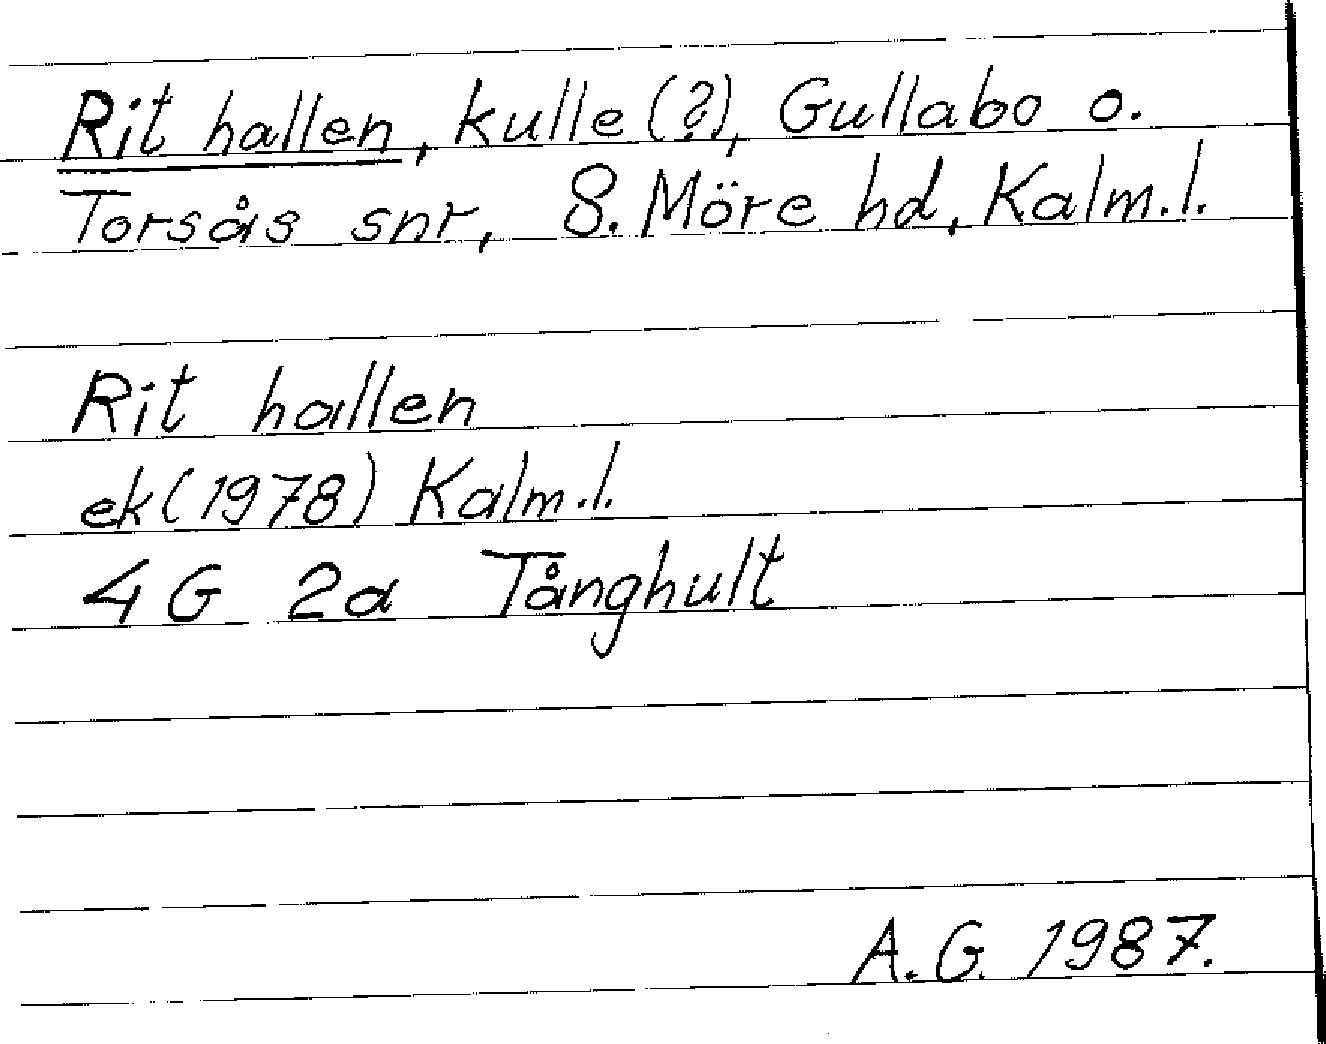 Rit hallen, kulle (?), Gullabo o.
Torsås snr, S. Möre hd, Kalm.l.
Rit hallen
ek (1978) Kalm.l.
4 G 2a Tånghult
A.G. 1987.